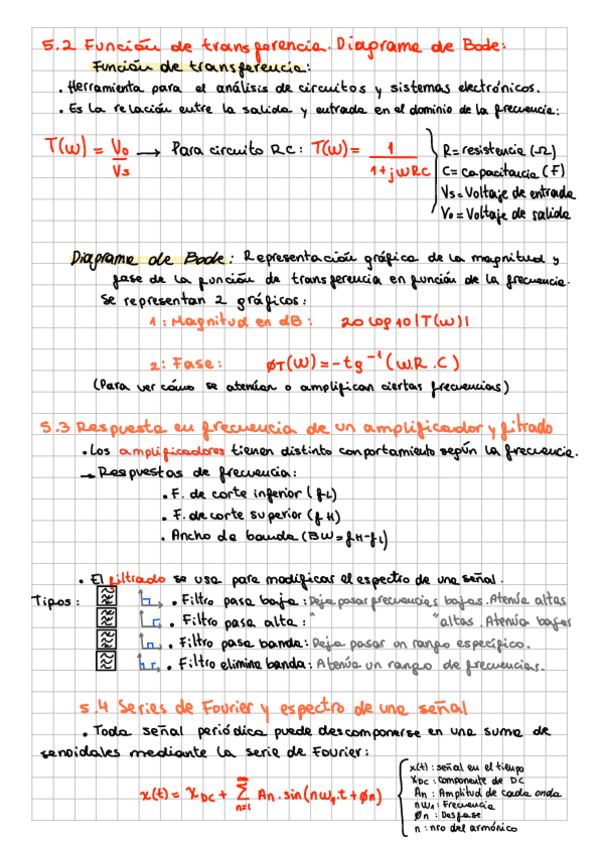 5.2 Función de transferencia. Diagrama de Bode:
Función de transferencia:
. Herramienta para el análisis de circuitos y sistemas electrónicos.
. Es la relación entre la salida y entrada en el dominio de la frecuencia:
T(w) = Vo/Vs → Para circuito RC: T(w) = 1/(1+jwRC)
R = resistencia (Ω)
C = capacitancia (F)
Vs = Voltaje de entrada
Vo = Voltaje de salida
Diagrama de Bode: Representación gráfica de la magnitud y
fase de la función de transferencia en función de la frecuencia.
Se representan 2 gráficos:
1: Magnitud en dB: 20 log10 |T(w)|
2: Fase: øT(w) = -tg⁻¹(w.R.C)
(Para ver cómo se atenúan o amplifican ciertas frecuencias)
5.3 Respuesta en frecuencia de un amplificador y fitrado
. Los amplificadores tienen distinto comportamiento según la frecuencia.
→ Respuestas de frecuencia:
. F. de corte inferior (fL)
. F. de corte superior (fH)
. Ancho de banda (BW = fH-fL)
. El filtrado se usa para modificar el espectro de una señal.
Tipos: . Filtro pasa baja: Deja pasar frecuencias bajas. Atenúa altas
. Filtro pasa alta: " "altas. Atenúa bajas
. Filtro pasa banda: Deja pasar un rango específico.
. Filtro elimina banda: Atenúa un rango de frecuencias.
5.4 Series de Fourier y espectro de una señal
. Toda señal periódica puede descomponerse en una suma de
senoidales mediante la serie de Fourier:
x(t) = XDC + ∞ Σ n=1 An.sin(nw₁.t + øn)
x(t): señal en el tiempo
XDC: componente de DC
An: Amplitud de cada onda
nw₁: Frecuencia
øn: Desfase
n: nro del armónico